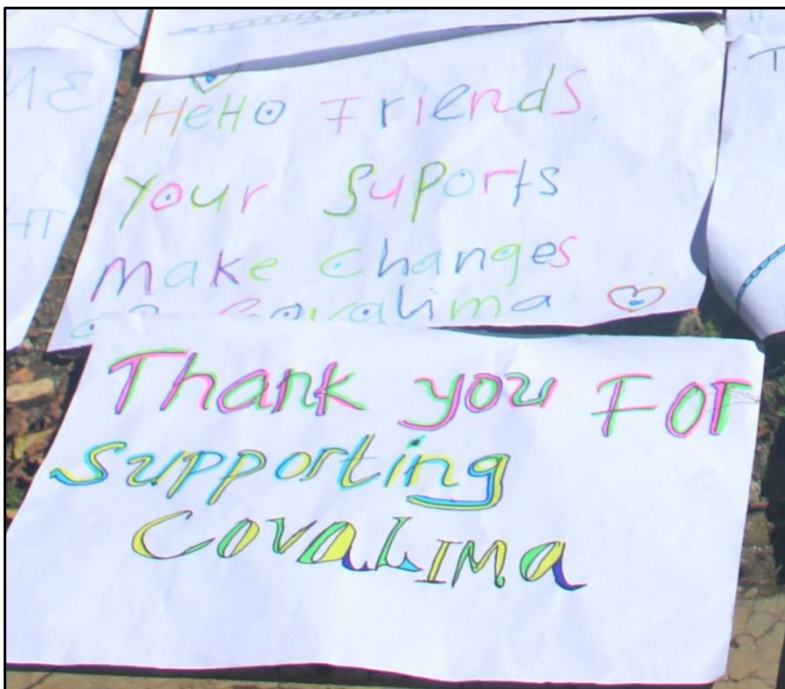 HeHo Friends.
your suports
make changes
Covalima
Thank you For
supporting
COVALIMa